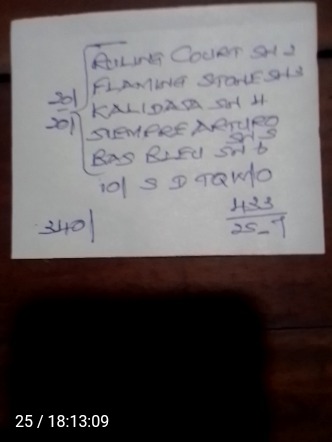 RULING COURT SH 2
FLAMING STONE SH 3
20/
KALIDASA SH 4
20/
SIEMPRE ARTURO
SH 5
BAS BLEU SH 6
10/ S D TQK/O
340/
433
25-7
25 / 18:13:09